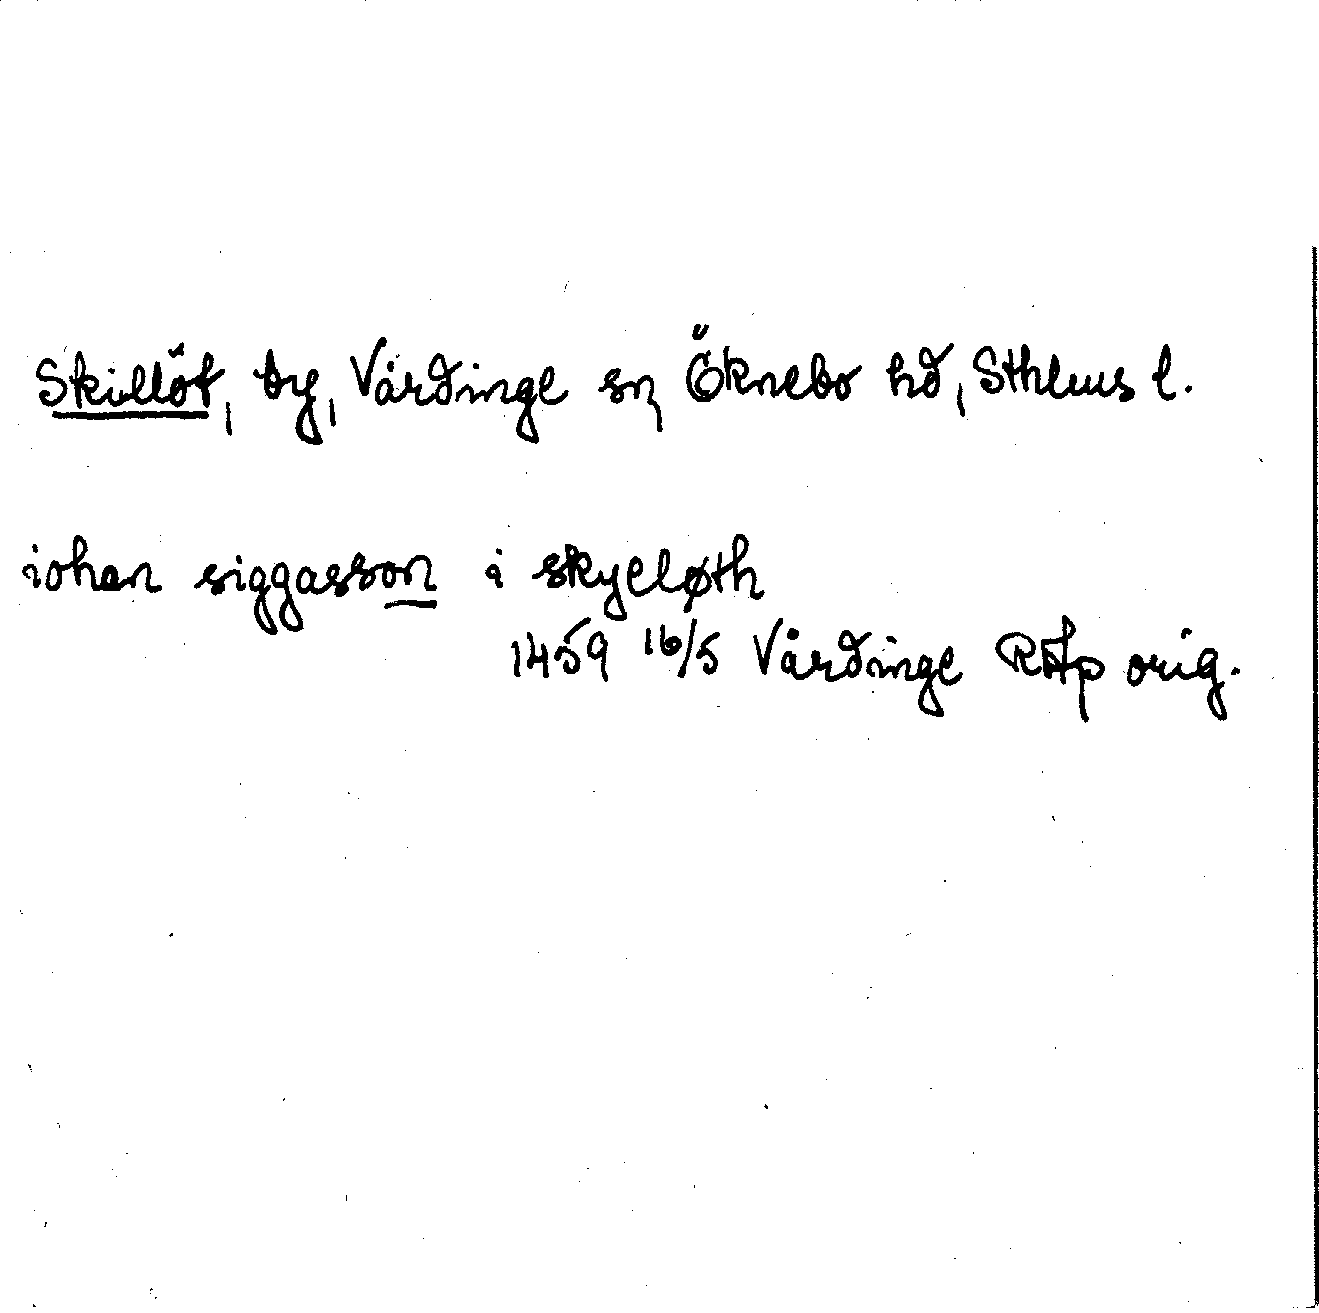 Skillöt, by, Vårdinge sn, Öknebo hd, Sthlms l.
iohan siggasson i skyeløth
1459 16/5 Vårdinge RAp orig.